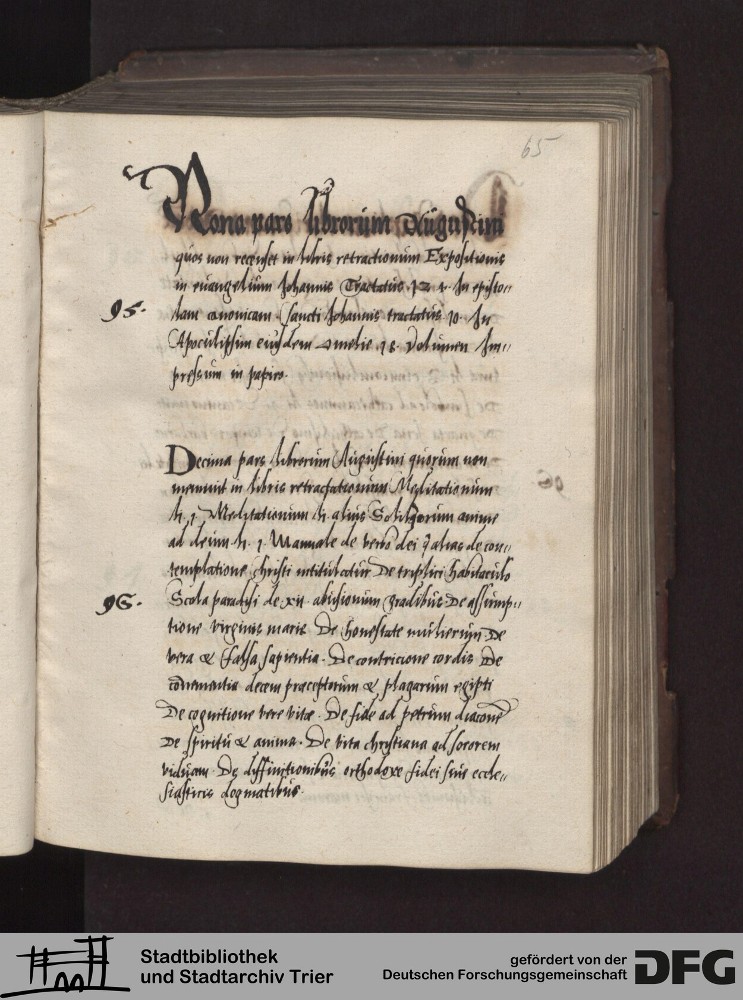 65
Nona pars librorum Augustini
quos non recenset in libris retractionum Expositionis
in euangelium Johannis Tractatus 124. In episto-
95.
lam canonicam Sancti Johannis tractatus 10. In
Apocalipsim eiusdem omelie 18. Volumen Im-
pressum in papiro.
Decima pars librorum Augustini quorum non
meminit in libris retractationum Meditationum
li. 1 Meditationum li. alius Soliloquiorum anime
ad deum li. 1 Manuale de verbo dei alias de con-
templatione christi intitulatur De triplici habitaculo
96.
Scala paradisi de xii abusionum gradibus De assump-
tione virginis marie De honestate mulierum De
vera & falsa sapientia. De contricione cordis De
conuenientia decem praeceptorum & plagarum egipti
De cognitione vere vite. De fide ad petrum diaconum
De spiritu & anima. De vita christiana ad sororem
viduam. De diffinitionibus orthodoxe fidei siue eccle-
siasticis dogmatibus.
Stadtbibliothek
und Stadtarchiv Trier
gefördert von der
Deutschen Forschungsgemeinschaft
DFG